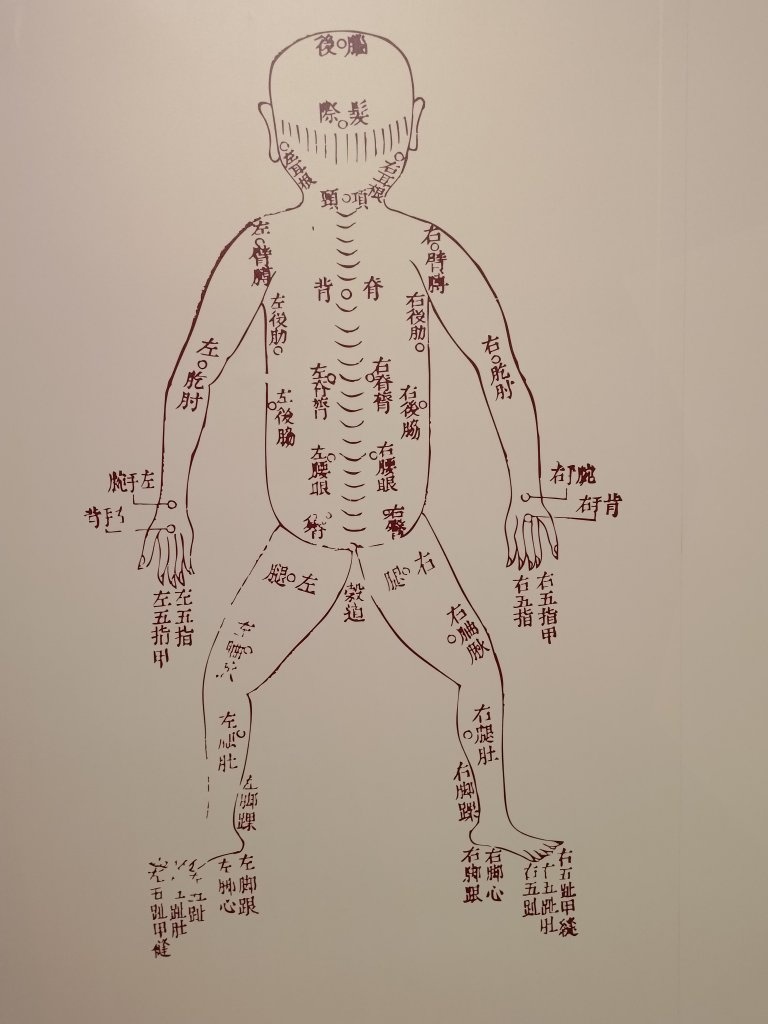 後腦
髮際
左耳根
右耳根
項頸
左臂膊
右臂膊
脊背
左後肋
右後肋
左肐肘
右肐肘
左脊膂
右脊膂
左後脇
右後脇
左腰眼
右腰眼
左手腕
右手腕
手背
右手背
右臀
左腿
右腿
穀道
左五指
左五指甲
右五指甲
右五指
右䐐䏮
左腿肚
右腿肚
左脚踝
右脚踝
左脚跟
左脚心
趾
趾肚
左五趾甲縫
右脚心
右脚跟
右五趾甲縫
五趾肚
右五趾